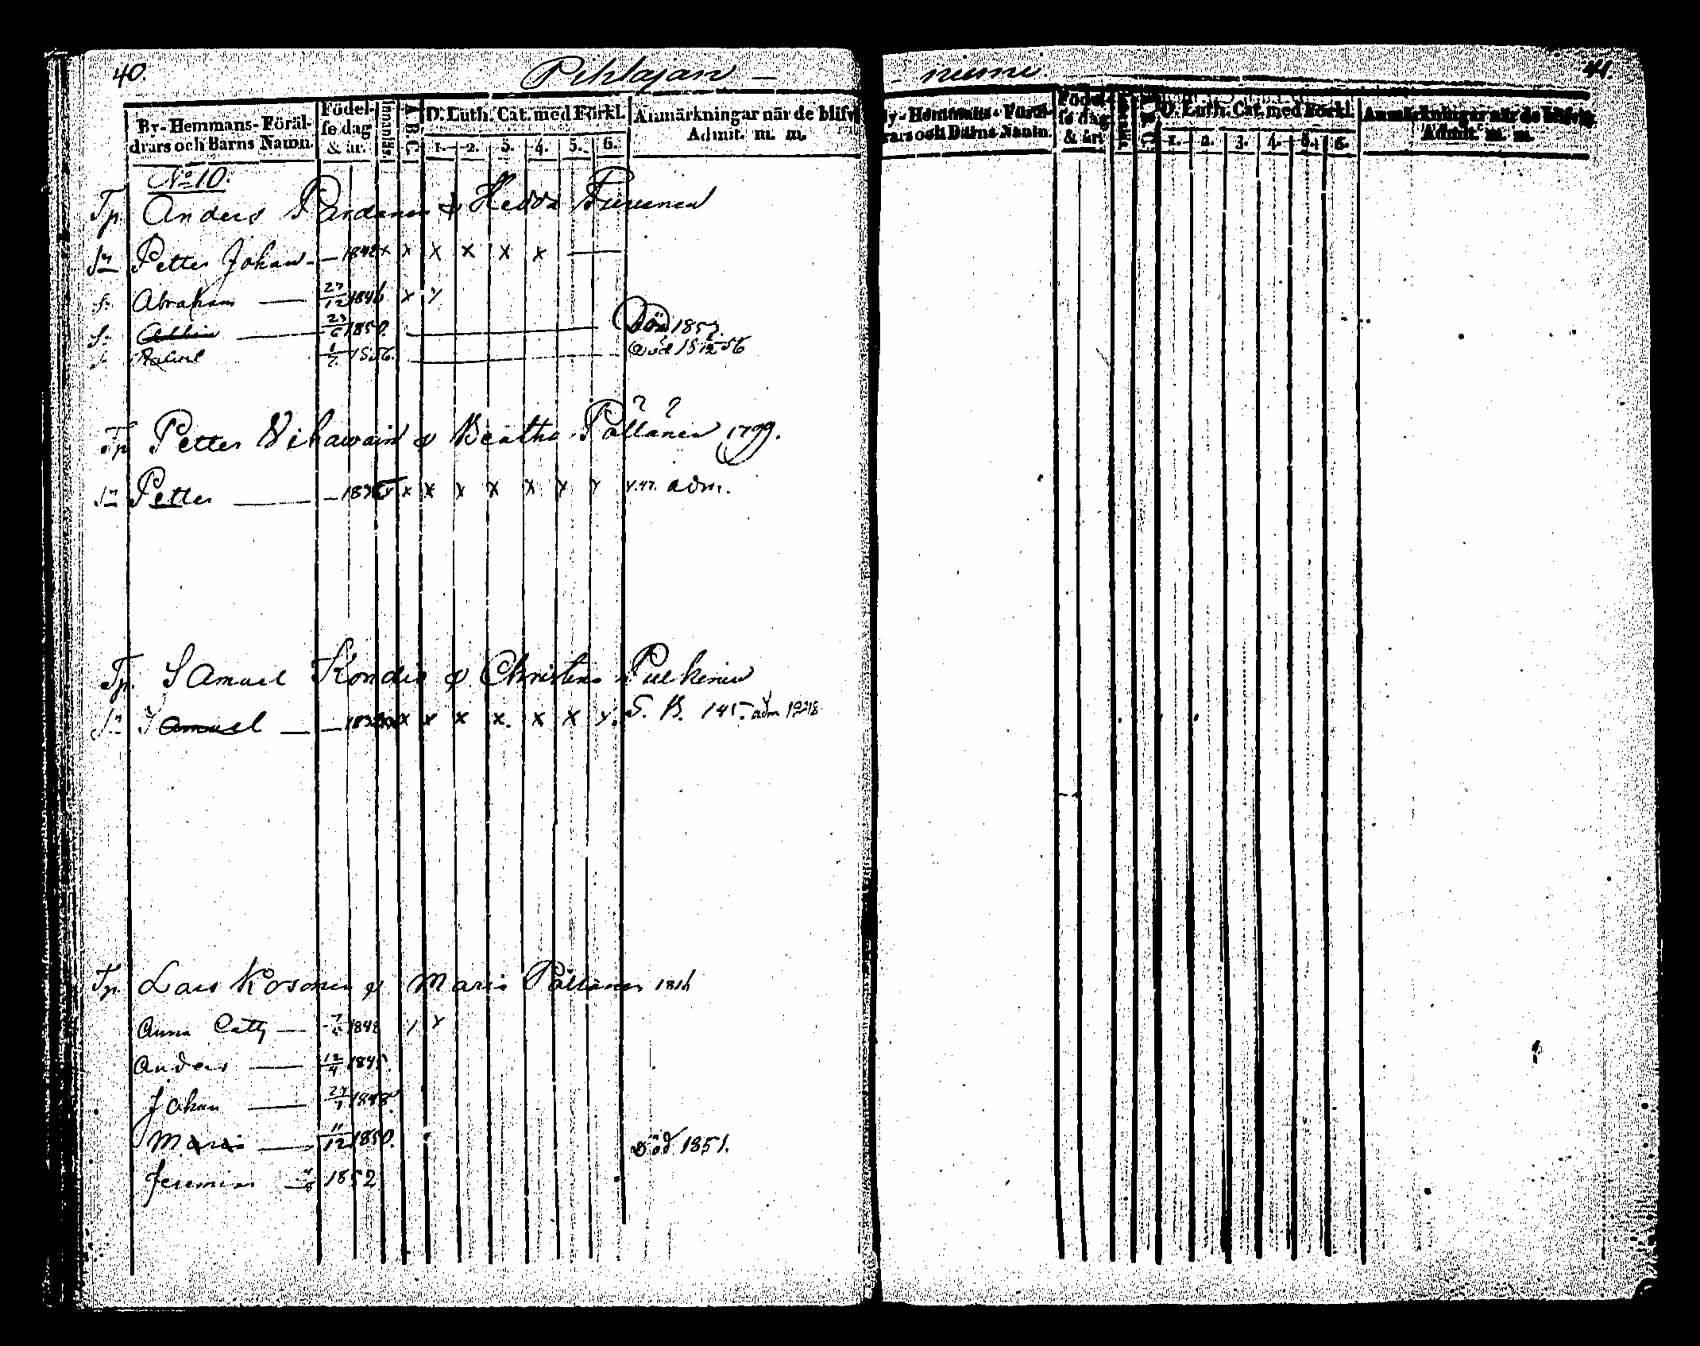 40. Pihlajan –
By-Hemmans-Föräl-
drars och Barns Namn.
Födel-
se dag
& år.
Innanläs.
A B C.
D. Luth. Cat. med Förkl.
1. 2. 3. 4. 5. 6.
Anmärkningar när de blifv
Admit. m. m.
No 10.
Tp. Anders Pardanen & Hedda
Sn Petter Johan – 1842 x x x x x x
S. Abraham 27/12 1846 x x
S. Albin 23/6 1850. Död 1857.
S. 1856. Död 15/12 56
? ?
Tp Petter & Beatha Pöllänen 1799.
Sn Petter x x x x x x x adm.
Tp. Samuel Kondia & Christina Pulkinen
Sn Samuel x x x x x x x. S. B. 145. adm
Tp. Lars Kosonen & Maria Pöllänen
Anna Cath
Anders 12/4 1845.
Johan
Maria 11/12 1850. Död 1851.
Jeremias 1852
– niemi 41.
By-Hemmans-Föräl-
drars och Barns Namn.
Födel-
se dag
& år.
D. Luth. Cat. med Förkl.
1. 2. 3. 4. 5. 6.
Anmärkningar när de blifvit
Admit. m. m.